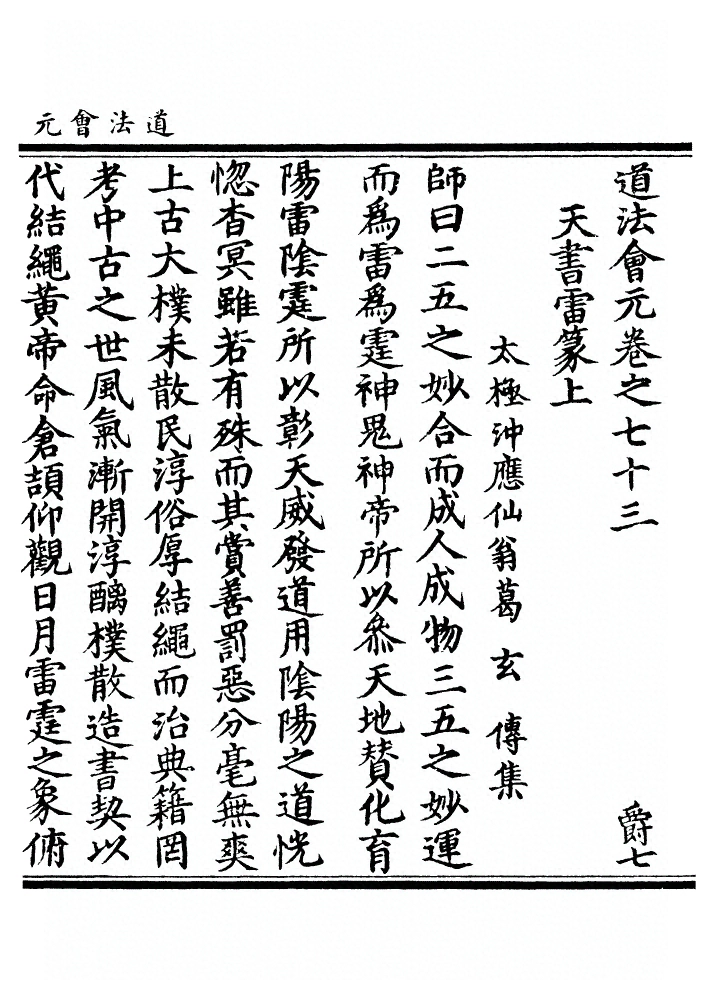 道法會元
道法會元卷之七十三 爵七
天書雷篆上
太極沖應仙翁葛玄傳集
師曰二五之妙合而成人成物三五之妙運
而爲雷爲霆神鬼神帝所以叅天地賛化育
陽雷陰霆所以彰天威發道用陰陽之道恍
惚杳冥雖若有殊而其賞善罰惡分毫無爽
上古大樸未散民淳俗厚結繩而治典籍罔
考中古之世風氣漸開淳醨樸散造書契以
代結繩黃帝命倉頡仰觀日月雷霆之象俯